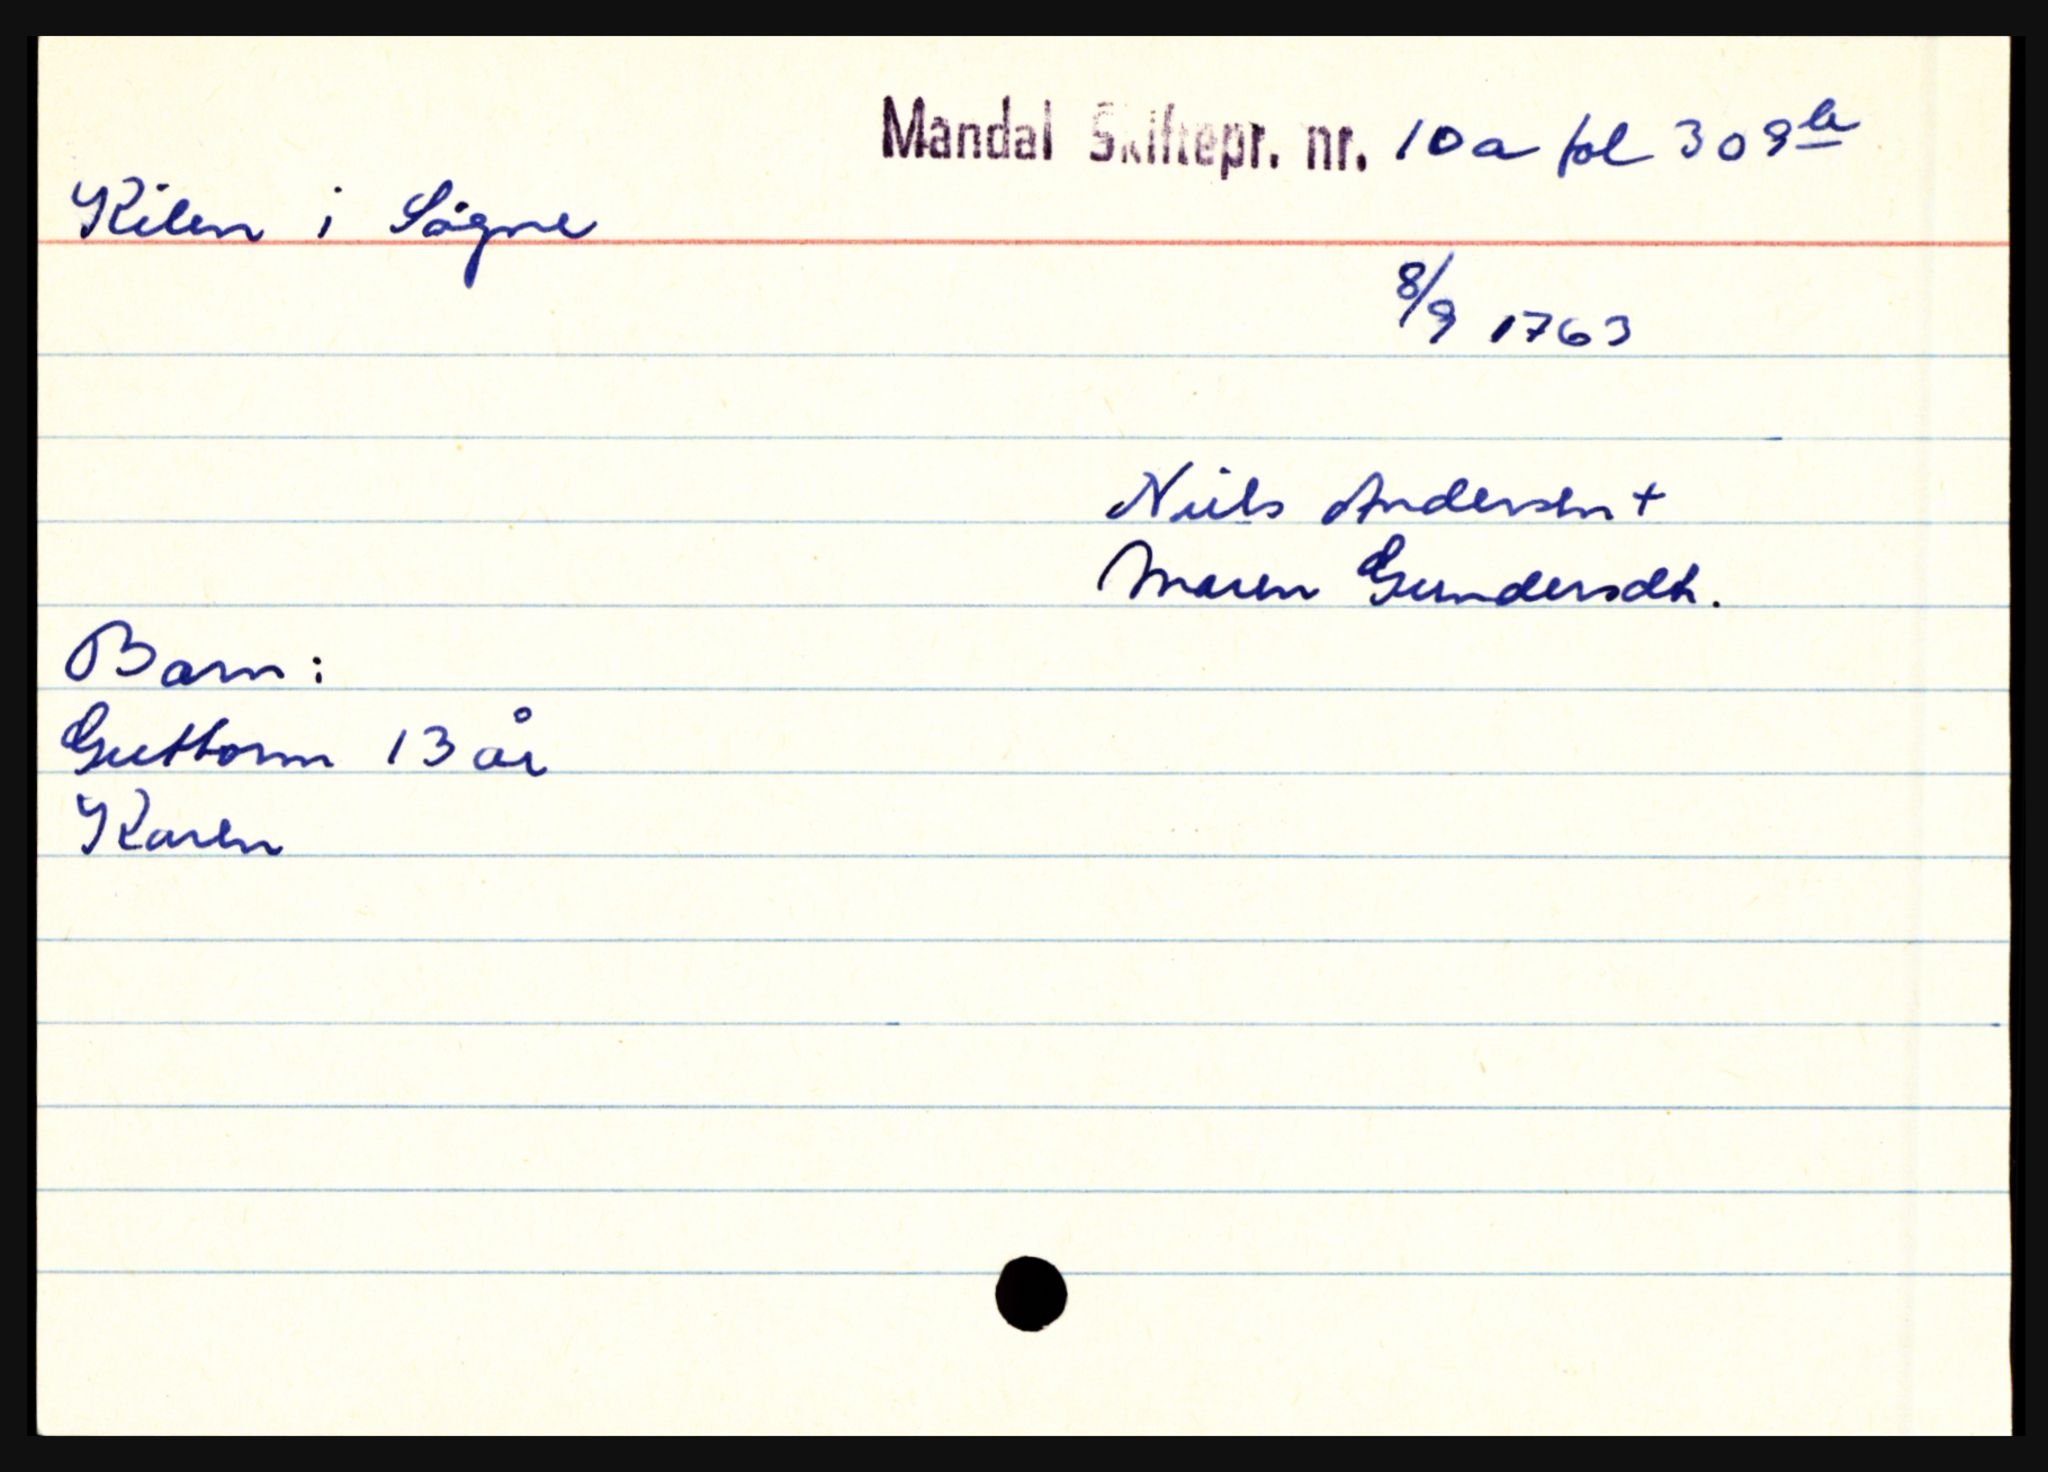 Mandal Skiftepr. nr. 10a fol 309 b
Kilen i Søgne
8/9 1763
Niels Andersen +
Maren Gundersdt.
Barn:
Guttorm 13 år
Karen